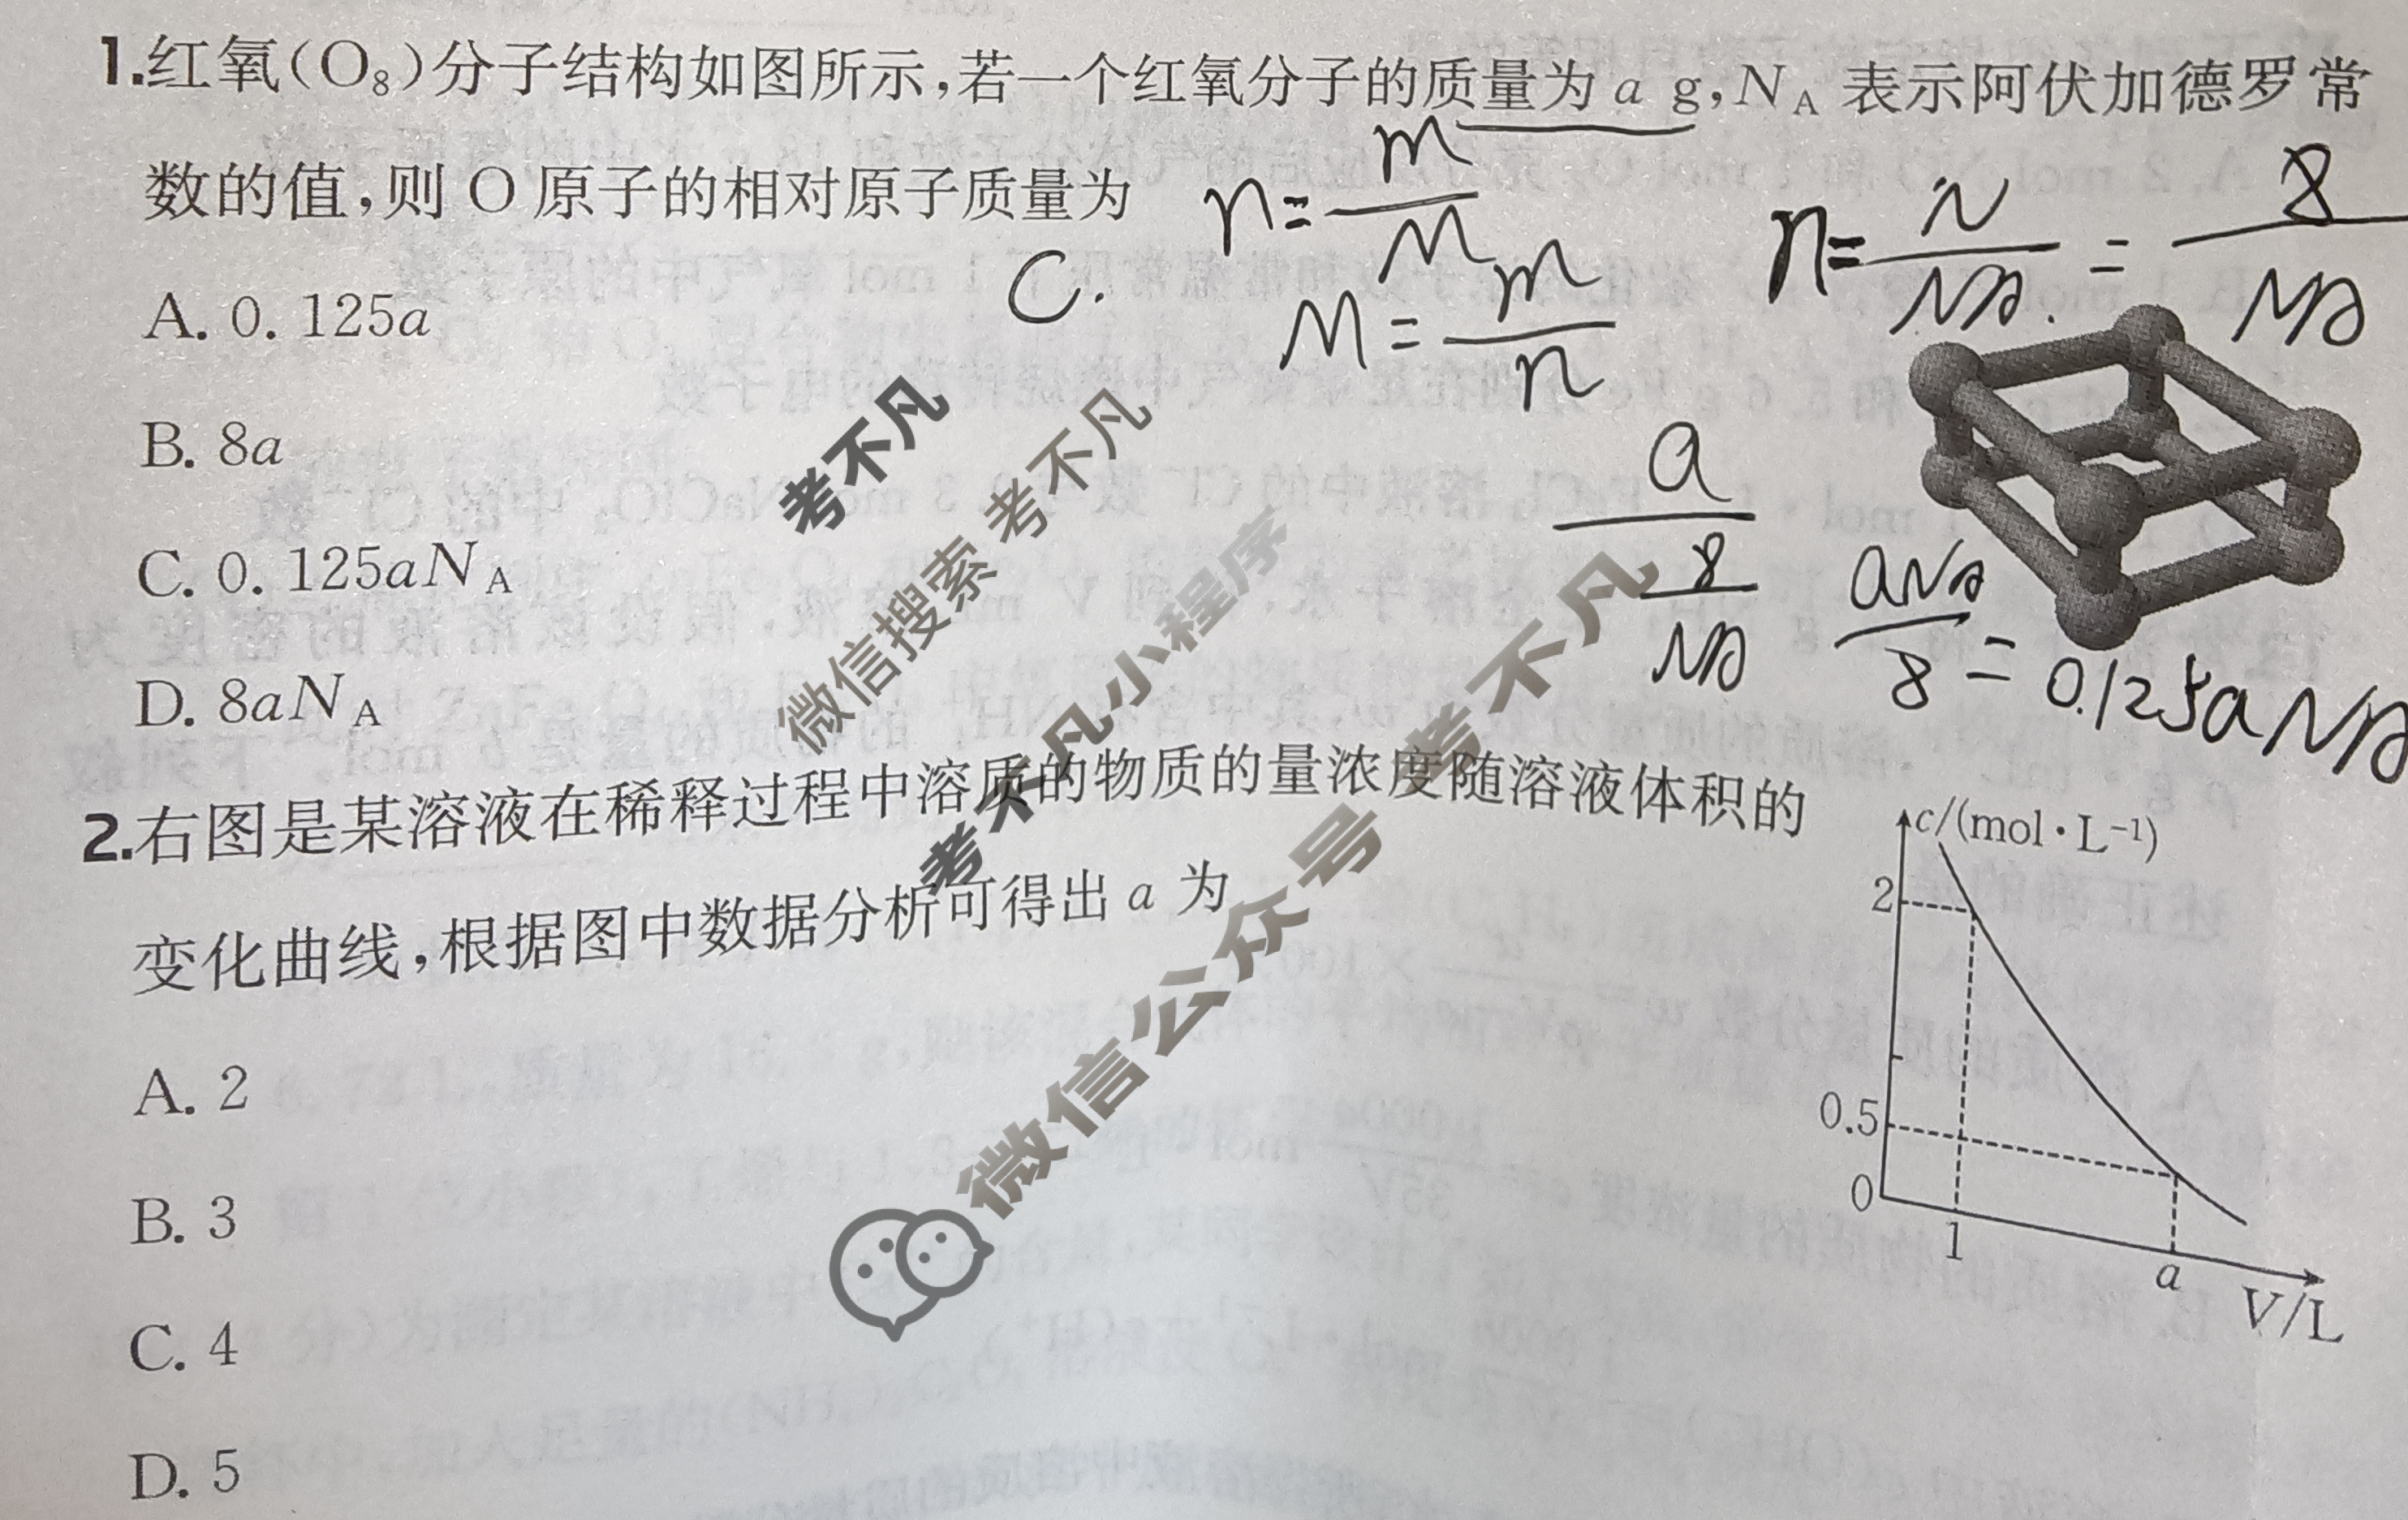 1.红氧(O₈)分子结构如图所示,若一个红氧分子的质量为 a g,N_A 表示阿伏加德罗常
数的值,则 O 原子的相对原子质量为
C.
n=m/M
M=m/n
n=N/NA.=8/NA
A. 0. 125a
B. 8a
C. 0. 125aN_A
D. 8aN_A
a/(8/NA)
aNA/8=0.125aNA
考不凡
微信搜索 考不凡
考不凡小程序
微信公众号 考不凡
2.右图是某溶液在稀释过程中溶质的物质的量浓度随溶液体积的
变化曲线,根据图中数据分析可得出 a 为
A. 2
B. 3
C. 4
D. 5
c/(mol·L⁻¹)
2
0.5
0
1
a
V/L